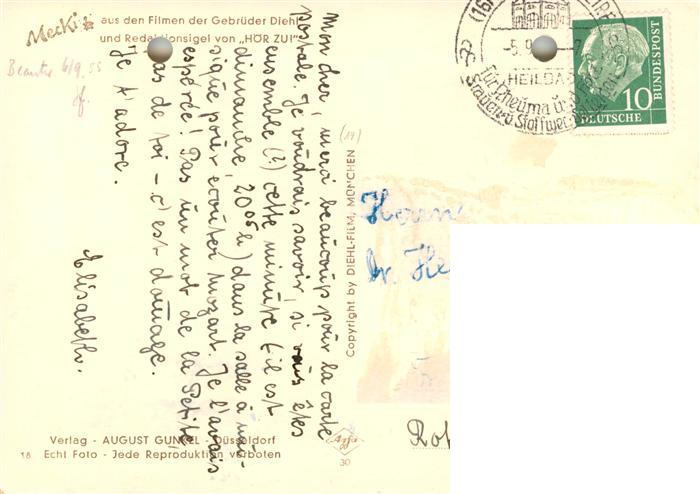 Mecki
aus den Filmen der Gebrüder Diehl
und Redaktionsigel von „HÖR ZU!"
6/9. 55
Mon cher, merci beaucoup pour la carte
postale. Je voudrais savoir, si vous êtes
ensemble (?) cette minute (il est
dimanche, 20 05 h) dans la salle à mu-
sique pour écouter Mozart. Je l'avais
espéré! Pas un mot de la Petite,
pas de toi – c'est domage.
Je t'adore.
Elisabeth.
Verlag - AUGUST GUNKEL - Düsseldorf
18 Echt Foto - Jede Reproduktion verboten
Copyright by DIEHL-FILM, MÜNCHEN
(14)
Agfa
30
(16)
-5.9
HEILBAD
für Rheuma
Stoffwe
10
DEUTSCHE
BUNDESPOST
Herrn
Dr. He
Rot